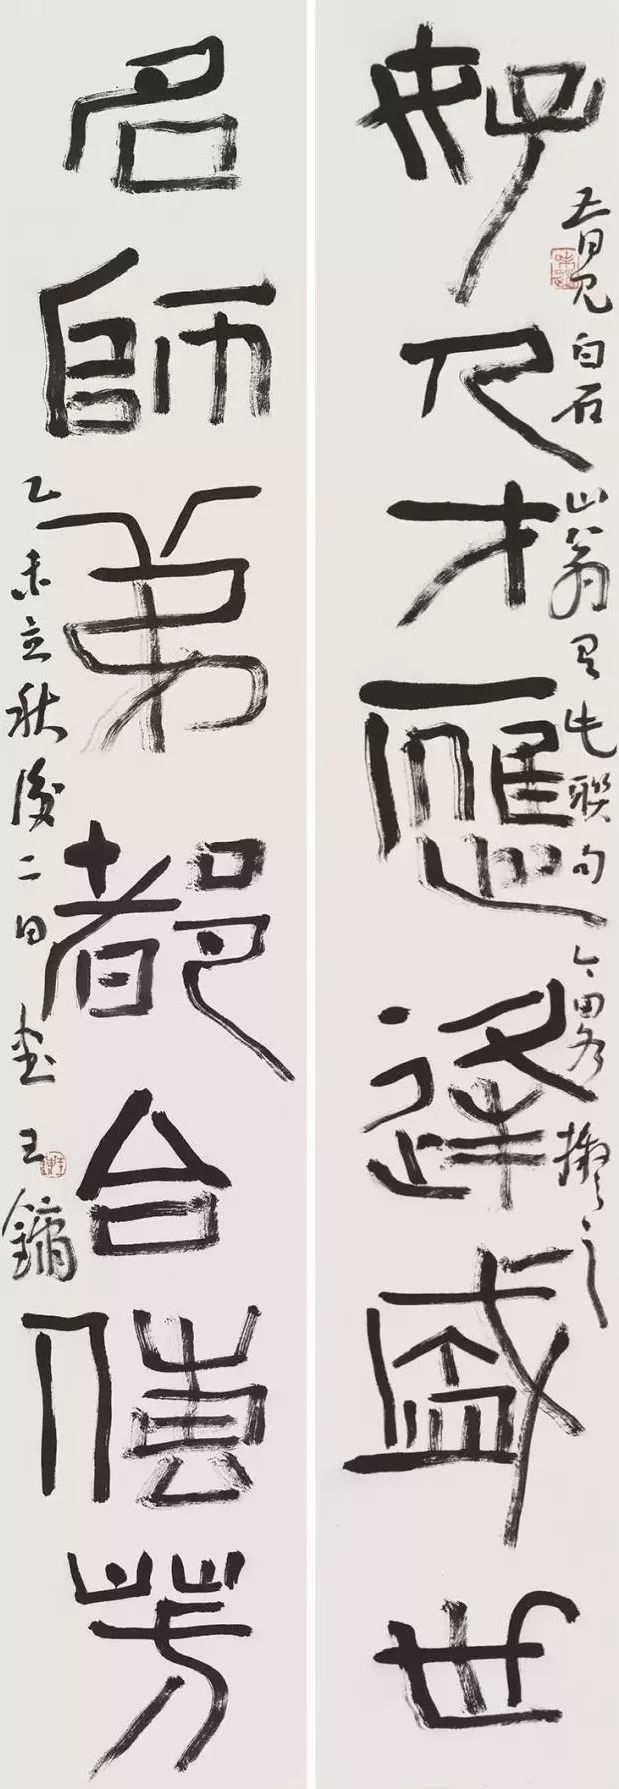 好人才應逢盛世
吾曾見白石山翁有此聯句
今略擬之
名師弟都合傳芳
乙未立秋後二日
王鏞